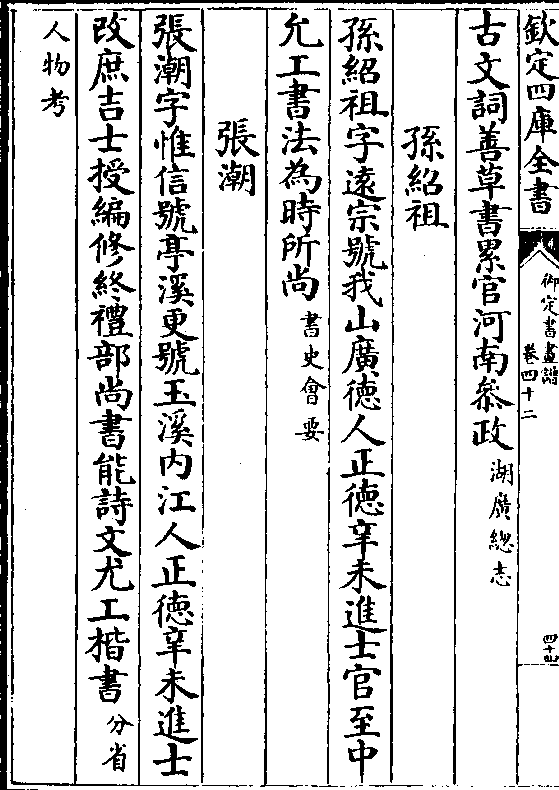 欽定四庫全書
御定書畫譜
卷四十二
古文詞善草書累官河南叅政湖廣總志
孫紹祖
孫紹祖字遠宗號我山廣徳人正徳辛未進士官至中
允工書法為時所尚書史會要
張潮
張潮字惟信號亭溪更號玉溪内江人正徳辛未進士
改庶吉士授編修終禮部尚書能詩文尤工楷書分省
人物考